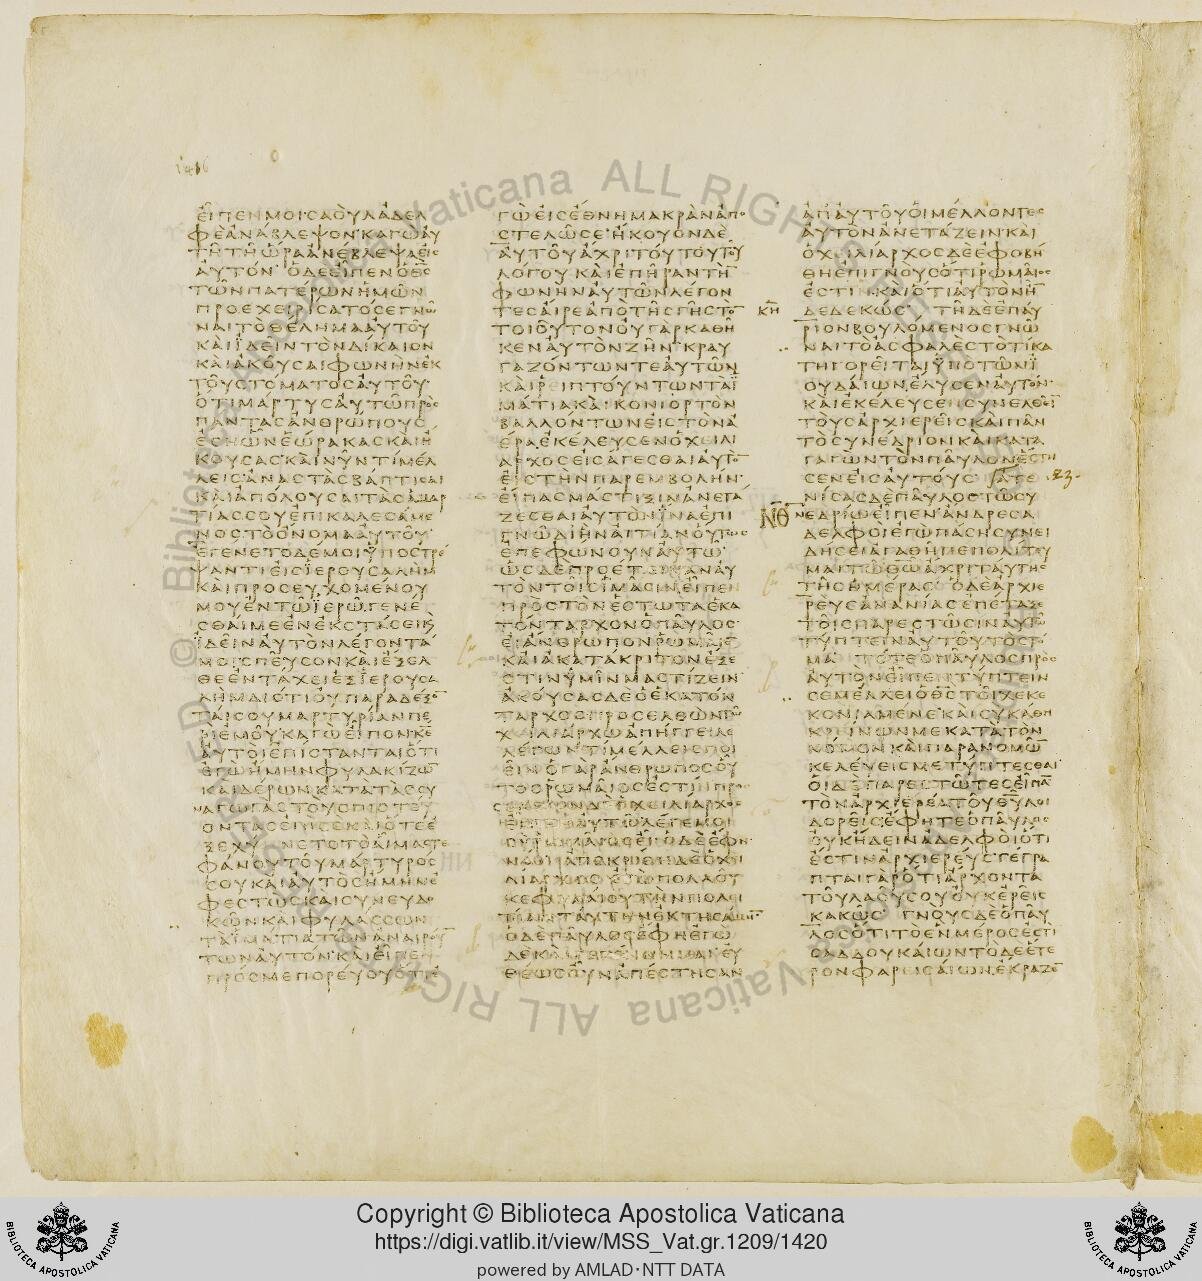 1416
ΕΙΠΕΝΜΟΙΣΑΟΥΛΑΔΕΛ
ΦΕΑΝΑΒΛΕΨΟΝΚΑΓΩΑΥ
ΤΗΤΗΩΡΑΑΝΕΒΛΕΨΑΕΙΣ
ΑΥΤΟΝΟΔΕΕΙΠΕΝΟΘΣ
ΤΩΝΠΑΤΕΡΩΝΗΜΩΝ
ΠΡΟΕΧΕΙΡΙΣΑΤΟΣΕΓΝΩ
ΝΑΙΤΟΘΕΛΗΜΑΑΥΤΟΥ
ΚΑΙΙΔΕΙΝΤΟΝΔΙΚΑΙΟΝ
ΚΑΙΑΚΟΥΣΑΙΦΩΝΗΝΕΚ
ΤΟΥΣΤΟΜΑΤΟΣΑΥΤΟΥ
ΟΤΙΜΑΡΤΥΣΑΥΤΩΠΡΟΣ
ΠΑΝΤΑΣΑΝΘΡΩΠΟΥΣ
ΕΣΗΩΝΕΩΡΑΚΑΣΚΑΙΗ
ΚΟΥΣΑΣΚΑΙΝΥΝΤΙΜΕΛ
ΛΕΙΣΑΝΑΣΤΑΣΒΑΠΤΙΣΑΙ
ΚΑΙΑΠΟΛΟΥΣΑΙΤΑΣΑΜΑΡ
ΤΙΑΣΣΟΥΕΠΙΚΑΛΕΣΑΜΕ
ΝΟΣΤΟΟΝΟΜΑΑΥΤΟΥ
ΕΓΕΝΕΤΟΔΕΜΟΙΥΠΟΣΤΡΕ
ΨΑΝΤΙΕΙΣΙΕΡΟΥΣΑΛΗΜ
ΚΑΙΠΡΟΣΕΥΧΟΜΕΝΟΥ
ΜΟΥΕΝΤΩΙΕΡΩΓΕΝΕ
ΣΘΑΙΜΕΕΝΕΚΣΤΑΣΕΙΚΑΙ
ΙΔΕΙΝΑΥΤΟΝΛΕΓΟΝΤΑ
ΜΟΙΣΠΕΥΣΟΝΚΑΙΕΞΕΛ
ΘΕΕΝΤΑΧΕΙΕΞΙΕΡΟΥΣΑ
ΛΗΜΔΙΟΤΙΟΥΠΑΡΑΔΕΞΟ
ΤΑΙΣΟΥΜΑΡΤΥΡΙΑΝΠΕ
ΡΙΕΜΟΥΚΑΓΩΕΙΠΟΝΚΕ
ΑΥΤΟΙΕΠΙΣΤΑΝΤΑΙΟΤΙ
ΕΓΩΗΜΗΝΦΥΛΑΚΙΖΩ
ΚΑΙΔΕΡΩΝΚΑΤΑΤΑΣΣΥ
ΝΑΓΩΓΑΣΤΟΥΣΠΙΣΤΕΥ
ΟΝΤΑΣΕΠΙΣΕΚΑΙΟΤΕΕ
ΞΕΧΥΝΝΕΤΟΤΟΑΙΜΑΣΤΕ
ΦΑΝΟΥΤΟΥΜΑΡΤΥΡΟΣ
ΣΟΥΚΑΙΑΥΤΟΣΗΜΗΝΕ
ΦΕΣΤΩΣΚΑΙΣΥΝΕΥΔΟ
ΚΩΝΚΑΙΦΥΛΑΣΣΩΝ
ΤΑΙΜΑΤΙΑΤΩΝΑΝΑΙΡΟΥ
ΤΩΝΑΥΤΟΝΚΑΙΕΙΠΕΝ
ΠΡΟΣΜΕΠΟΡΕΥΟΥΟΤΙΕ
ΓΩΕΙΣΕΘΝΗΜΑΚΡΑΝΑΠΟ
ΣΤΕΛΩΣΕΗΚΟΥΟΝΔΕ
ΑΥΤΟΥΑΧΡΙΤΟΥΤΟΥΤΟΥ
ΛΟΓΟΥΚΑΙΕΠΗΡΑΝΤΗ
ΦΩΝΗΝΑΥΤΩΝΛΕΓΟΝ
ΤΕΣΑΙΡΕΑΠΟΤΗΣΓΗΣΤΟ
ΤΟΙΟΥΤΟΝΟΥΓΑΡΚΑΘΗ
ΚΕΝΑΥΤΟΝΖΗΝΚΡΑΥ
ΓΑΖΟΝΤΩΝΤΕΑΥΤΩΝ
ΚΑΙΡΕΙΠΤΟΥΝΤΩΝΤΑΪ
ΜΑΤΙΑΚΑΙΚΟΝΙΟΡΤΟΝ
ΒΑΛΛΟΝΤΩΝΕΙΣΤΟΝΑ
ΕΡΑΕΚΕΛΕΥΣΕΝΟΧΕΙΛΙ
ΑΡΧΟΣΕΙΣΑΓΕΣΘΑΙΑΥΤΟ
ΕΙΣΤΗΝΠΑΡΕΜΒΟΛΗΝ
ΕΙΠΑΣΜΑΣΤΙΞΙΝΑΝΕΤΑ
ΖΕΣΘΑΙΑΥΤΟΝΪΝΑΕΠΙ
ΓΝΩΔΙΗΝΑΙΤΙΑΝΟΥΤΩΣ
ΕΠΕΦΩΝΟΥΝΑΥΤΩ
ΩΣΔΕΠΡΟΕΤΕΙΝΑΝΑΥ
ΤΟΝΤΟΙΣΙΜΑΣΙΝΕΙΠΕΝ
ΠΡΟΣΤΟΝΕΣΤΩΤΑΕΚΑ
ΤΟΝΤΑΡΧΟΝΟΠΑΥΛΟΣ
ΕΙΑΝΘΡΩΠΟΝΡΩΜΑΙΟ
ΚΑΙΑΚΑΤΑΚΡΙΤΟΝΕΞΕ
ΣΤΙΝΥΜΙΝΜΑΣΤΙΖΕΙΝ
ΑΚΟΥΣΑΣΔΕΟΕΚΑΤΟΝ
ΤΑΡΧΟΣΠΡΟΣΕΛΘΩΝΤΩ
ΧΕΙΛΙΑΡΧΩΑΠΗΓΓΕΙΛΕ
ΛΕΓΩΝΤΙΜΕΛΛΕΙΣΠΟΙ
ΕΙΝΟΓΑΡΑΝΘΡΩΠΟΣΟΥ
ΤΟΣΡΩΜΑΙΟΣΕΣΤΙΝΠΡΟ
ΣΕΛΘΩΝΔΕΟΧΕΙΛΙΑΡΧΟΣ
ΕΙΠΕΝΑΥΤΩΛΕΓΕΜΟΙ
ΣΥΡΩΜΑΙΟΣΕΙΟΔΕΕΦΗ
ΝΑΙΑΠΕΚΡΙΘΗΔΕΟΧΕΙ
ΛΙΑΡΧΟΣΕΓΩΠΟΛΛΟΥ
ΚΕΦΑΛΑΙΟΥΤΗΝΠΟΛΕΙ
ΤΕΙΑΝΤΑΥΤΗΝΕΚΤΗΣΑΜΗΝ
ΟΔΕΠΑΥΛΟΣΕΦΗΕΓΩ
ΔΕΚΑΙΓΕΓΕΝΝΗΜΑΙΕΥ
ΘΕΩΣΟΥΝΑΠΕΣΤΗΣΑΝ
ΑΠΑΥΤΟΥΟΙΜΕΛΛΟΝΤΕΣ
ΑΥΤΟΝΑΝΕΤΑΖΕΙΝΚΑΙ
ΟΧΙΛΙΑΡΧΟΣΔΕΕΦΟΒΗ
ΘΗΕΠΙΓΝΟΥΣΟΤΙΡΩΜΑΙΟΣ
ΕΣΤΙΝΚΑΙΟΤΙΑΥΤΟΝΗ
ΚΗ ΔΕΔΕΚΩΣΤΗΔΕΕΠΑΥ
ΡΙΟΝΒΟΥΛΟΜΕΝΟΣΓΝΩ
ΝΑΙΤΟΑΣΦΑΛΕΣΤΟΤΙΚΑ
ΤΗΓΟΡΕΙΤΑΙΫΠΟΤΩΝΪ
ΟΥΔΑΙΩΝΕΛΥΣΕΝΑΥΤΟΝ
ΚΑΙΕΚΕΛΕΥΣΕΝΣΥΝΕΛΘΕΙ
ΤΟΥΣΑΡΧΙΕΡΕΙΣΚΑΙΠΑΝ
ΤΟΣΥΝΕΔΡΙΟΝΚΑΙΚΑΤΑ
ΓΑΓΩΝΤΟΝΠΑΥΛΟΝΕΣΤΗ
ΣΕΝΕΙΣΑΥΤΟΥΣΑΤΕ 23.
ΝΙΣΑΣΔΕΠΑΥΛΟΣΤΩΣΥ
ΝΘ ΝΕΔΡΙΩΕΙΠΕΝΑΝΔΡΕΣΑ
ΔΕΛΦΟΙΕΓΩΠΑΣΗΣΥΝΕΙ
ΔΗΣΕΙΑΓΑΘΗΠΕΠΟΛΙΤΕΥ
ΜΑΙΤΩΘΩΑΧΡΙΤΑΥΤΗΣ
ΤΗΣΗΜΕΡΑΣΟΔΕΑΡΧΙΕ
ΡΕΥΣΑΝΑΝΙΑΣΕΠΕΤΑΞΕ
ΤΟΙΣΠΑΡΕΣΤΩΣΙΝΑΥΤΩ
ΤΥΠΤΕΙΝΑΥΤΟΥΤΟΣΤΟ
ΜΑΤΟΤΕΟΠΑΥΛΟΣΠΡΟΣ
ΑΥΤΟΝΕΙΠΕΝΤΥΠΤΕΙΝ
ΣΕΜΕΛΛΕΙΟΘΣΤΟΙΧΕΚΕ
ΚΟΝΙΑΜΕΝΕΚΑΙΣΥΚΑΘΗ
ΚΡΙΝΩΝΜΕΚΑΤΑΤΟΝ
ΝΟΜΟΝΚΑΙΠΑΡΑΝΟΜΩ
ΚΕΛΕΥΕΙΣΜΕΤΥΠΤΕΣΘΑΙ
ΟΙΔΕΠΑΡΕΣΤΩΤΕΣΕΙΠΑ
ΤΟΝΑΡΧΙΕΡΕΑΤΟΥΘΥΛΟΙ
ΔΟΡΕΙΣΕΦΗΤΕΟΠΑΥΛΟΣ
ΟΥΚΗΔΕΙΝΑΔΕΛΦΟΙΟΤΙ
ΕΣΤΙΝΑΡΧΙΕΡΕΥΣΓΕΓΡΑ
ΠΤΑΙΓΑΡΟΤΙΑΡΧΟΝΤΑ
ΤΟΥΛΑΟΥΣΟΥΟΥΚΕΡΕΙΣ
ΚΑΚΩΣΓΝΟΥΣΔΕΟΠΑΥ
ΛΟΣΟΤΙΤΟΕΝΜΕΡΟΣΕΣΤΙ
ΣΑΔΔΟΥΚΑΙΩΝΤΟΔΕΕΤΕ
ΡΟΝΦΑΡΙΣΑΙΩΝΕΚΡΑΖΕ
Copyright © Biblioteca Apostolica Vaticana
https://digi.vatlib.it/view/MSS_Vat.gr.1209/1420
powered by AMLAD·NTT DATA
BIBLIOTECA APOSTOLICA VATICANA
BIBLIOTECA APOSTOLICA VATICANA